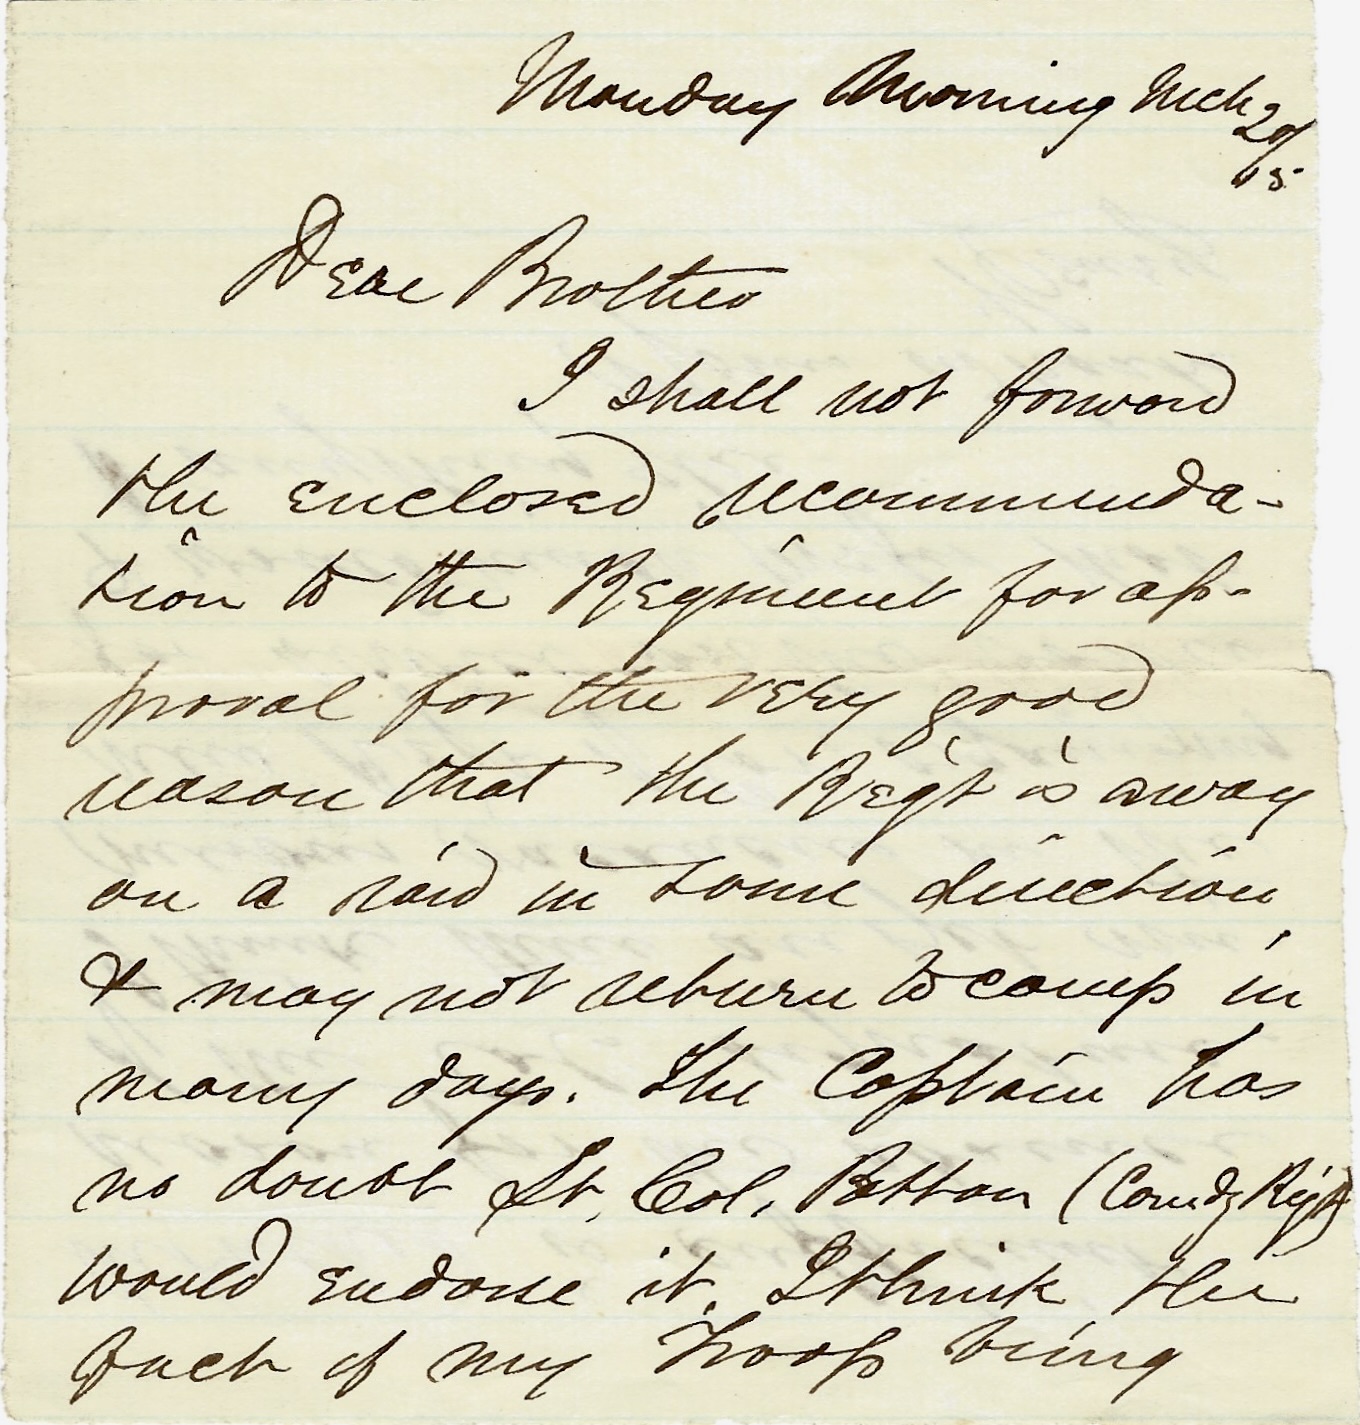 Monday Morning Mch 20/65
Dear Brother
I shall not forward
the enclosed recommenda-
tion to the Regiment for ap-
proval for the very good
reason that the Reg't is away
on a raid in some direction
& may not return to camp in
many days. The Captain has
no doubt Lt. Col. Patton (Comdg Reg't)
would endorse it. I think the
fact of my Troop being